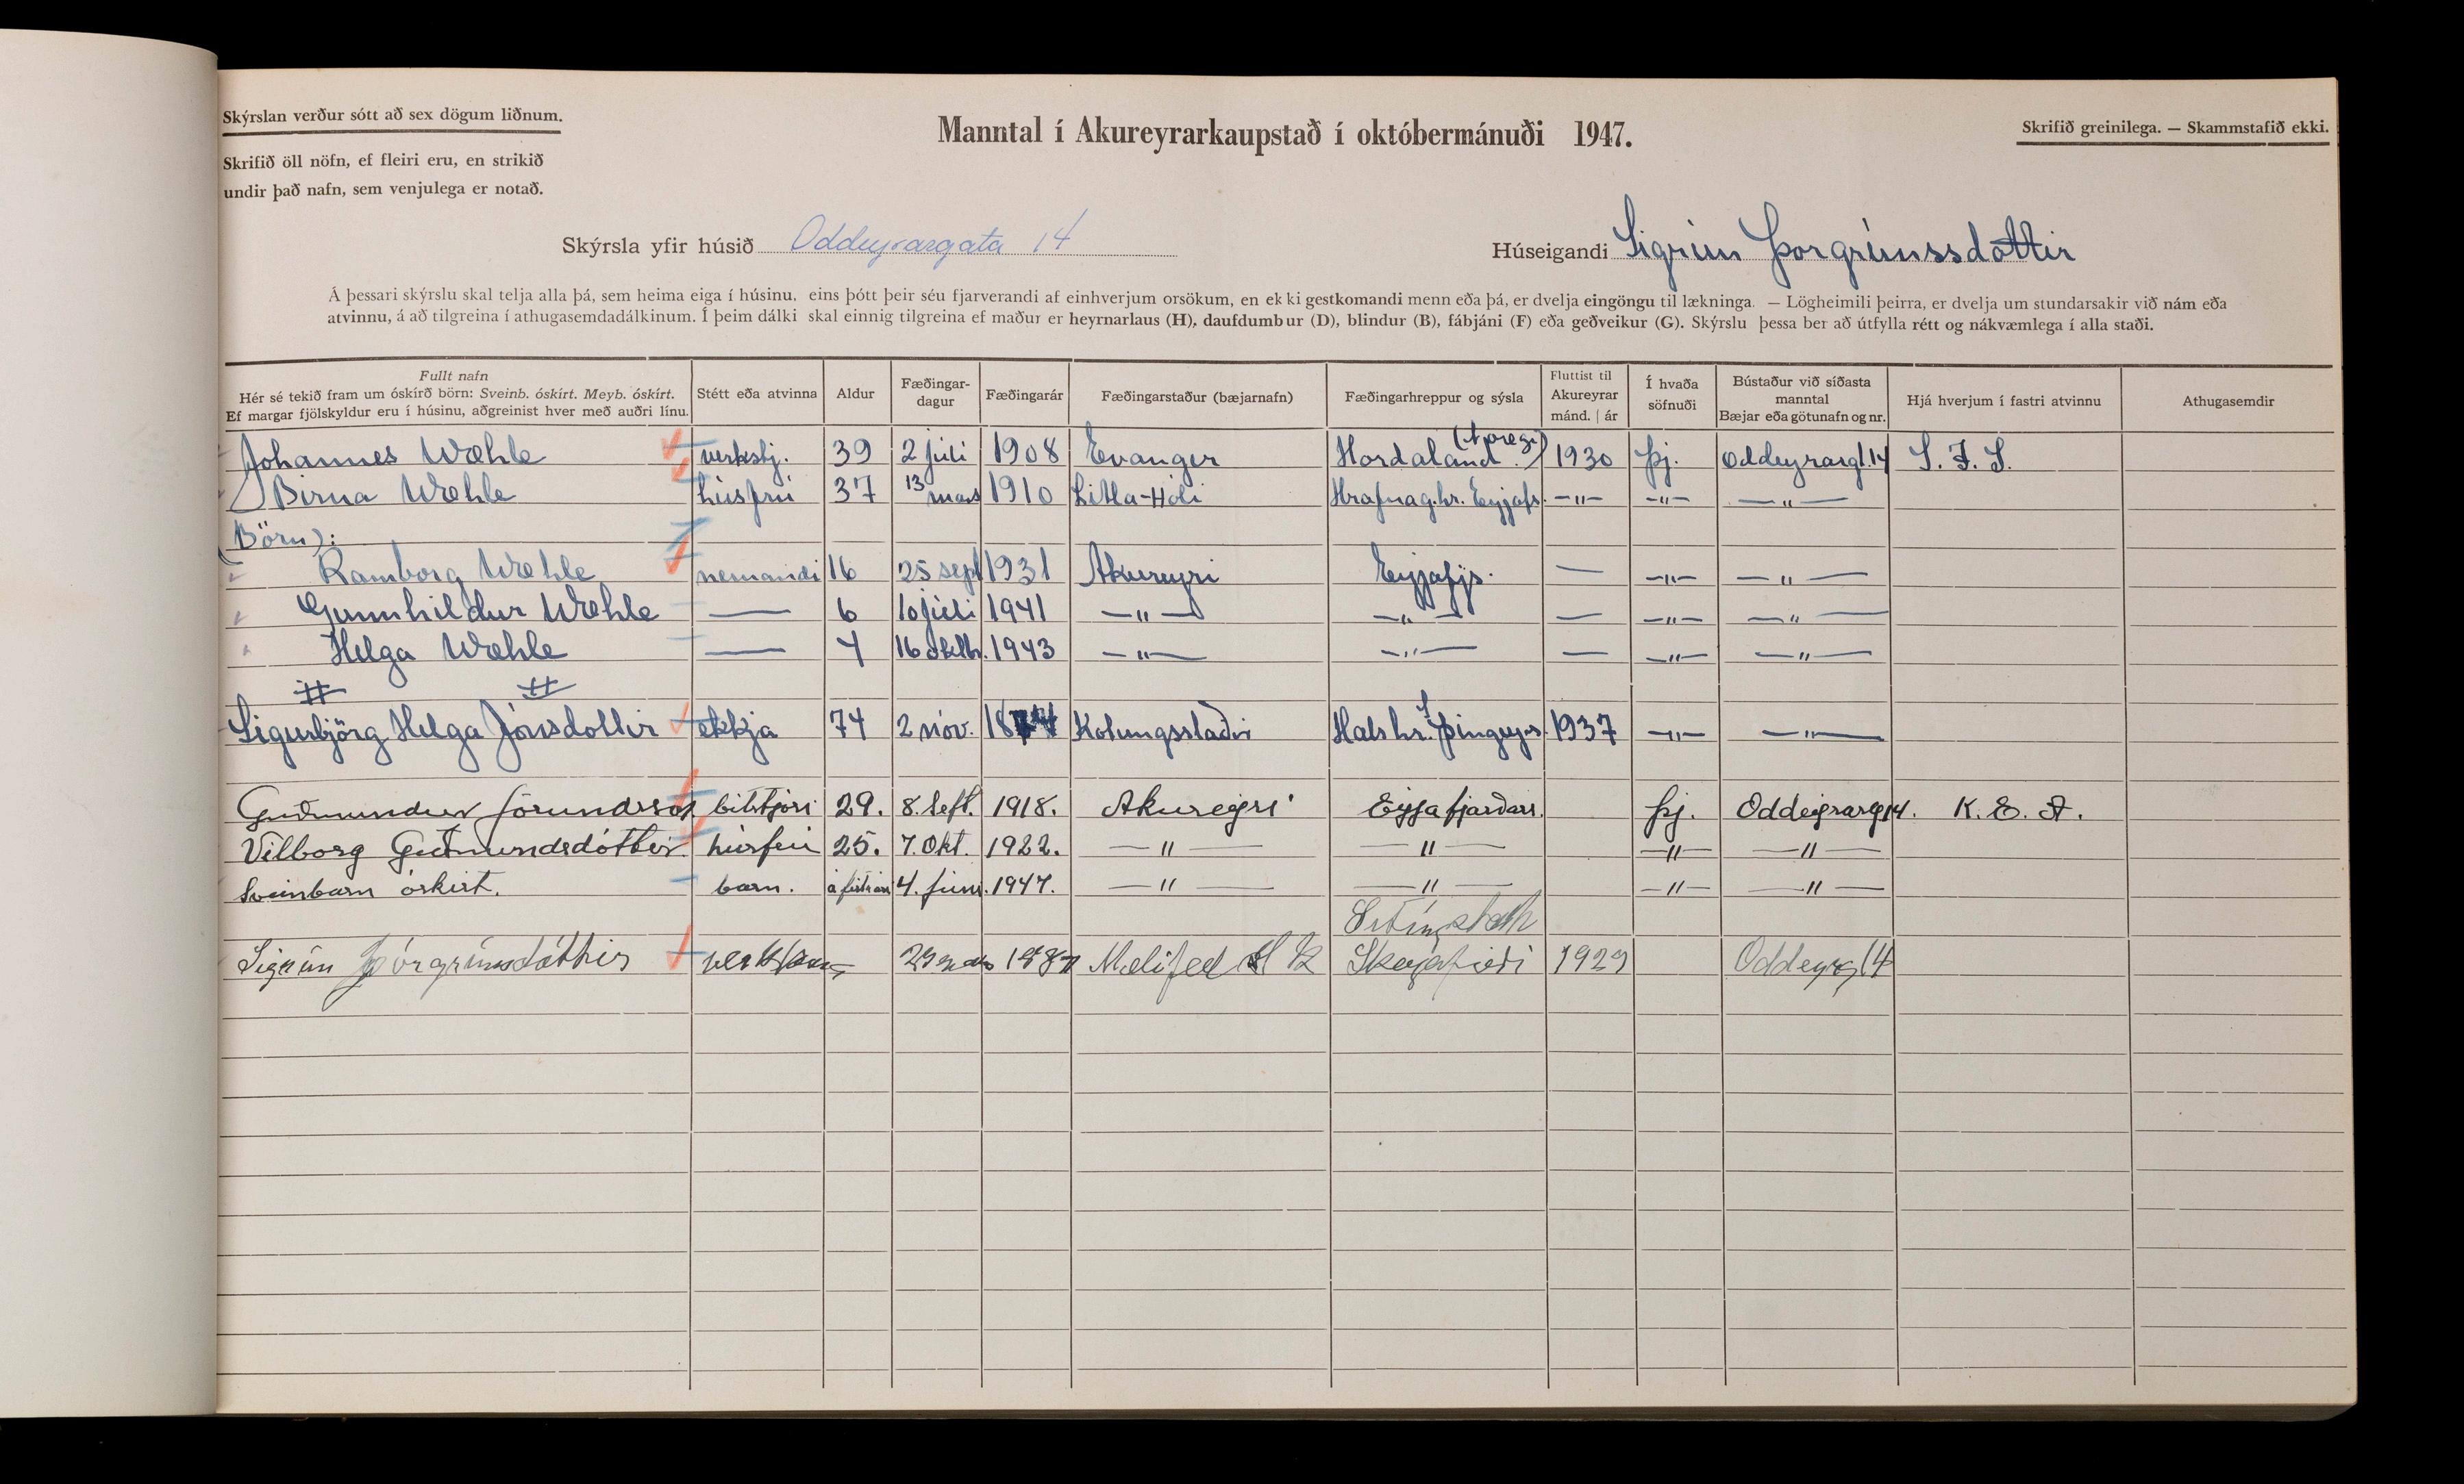 Skýrslan verður sótt að sex dögum liðnum.
Skrifið öll nöfn, ef fleiri eru, en strikið
undir það nafn, sem venjulega er notað.
Manntal í Akureyrarkaupstað í októbermánuði 1947.
Skrifið greinilega. — Skammstafið ekki.
Skýrsla yfir húsið Oddeyrargata 14
Húseigandi Sigrún Þorgrímssdóttir
Á þessari skýrslu skal telja alla þá, sem heima eiga í húsinu, eins þótt þeir séu fjarverandi af einhverjum orsökum, en ekki gestkomandi menn eða þá, er dvelja eingöngu til lækninga. — Lögheimili þeirra, er dvelja um stundarsakir við nám eða
atvinnu, á að tilgreina í athugasemdadálkinum. Í þeim dálki skal einnig tilgreina ef maður er heyrnarlaus (H), daufdumbur (D), blindur (B), fábjáni (F) eða geðveikur (G). Skýrslu þessa ber að útfylla rétt og nákvæmlega í alla staði.
Fullt nafn
Hér sé tekið fram um óskírð börn: Sveinb. óskírt. Meyb. óskírt.
Ef margar fjölskyldur eru í húsinu, aðgreinist hver með auðri línu.
Stétt eða atvinna
Aldur
Fæðingar-
dagur
Fæðingarár
Fæðingarstaður (bæjarnafn)
Fæðingarhreppur og sýsla
Fluttist til
Akureyrar
mánd. | ár
Í hvaða
söfnuði
Bústaður við síðasta
manntal
Bæjar eða götunafn og nr.
Hjá hverjum í fastri atvinnu
Athugasemdir
Johannes Wæhle verkstj. 39 2 júli 1908 Evanger Hordaland (Noregi) 1930 Þj. Oddeyrarg. 14 S. Í. S.
Birna Wæhle húsfrú 37 13 mars 1910 Litla-Hóli Hrafnag.hr. Eyjafs. —"— —"— —"—
Börn):
Ramborg Wæhle nemandi 16 25 sept 1931 Akureyri Eyjafjs. — —"— —"—
Gunnhildur Wæhle — 6 10 júli 1941 —"— —"— — —"— —"—
Helga Wæhle — 4 16 oktbr. 1943 —"— —"— — —"— —"—
Sigurbjörg Helga Jónsdottir ekkja 74 2 nóv. 18 Kotungsstaðir Hals hr. S Þingeys. 1937 —"— —"—
Guðmundur Jörundsson bilstjóri 29. 8. Sept. 1918. Akureyri Eyjafjarðars. Þj. Oddeyrarg 14. K. E. A.
Vilborg Guðmundsdóttir. húsfrú 25. 7. Okt. 1922. —"— —"— —"— —"—
Sveinbarn óskirt. barn. á fistaári 4. júní. 1947. —"— —"— —"— —"—
Sigrún Þórgrímsdóttir 1887 Skagafirði 1929 Oddeyrg 14